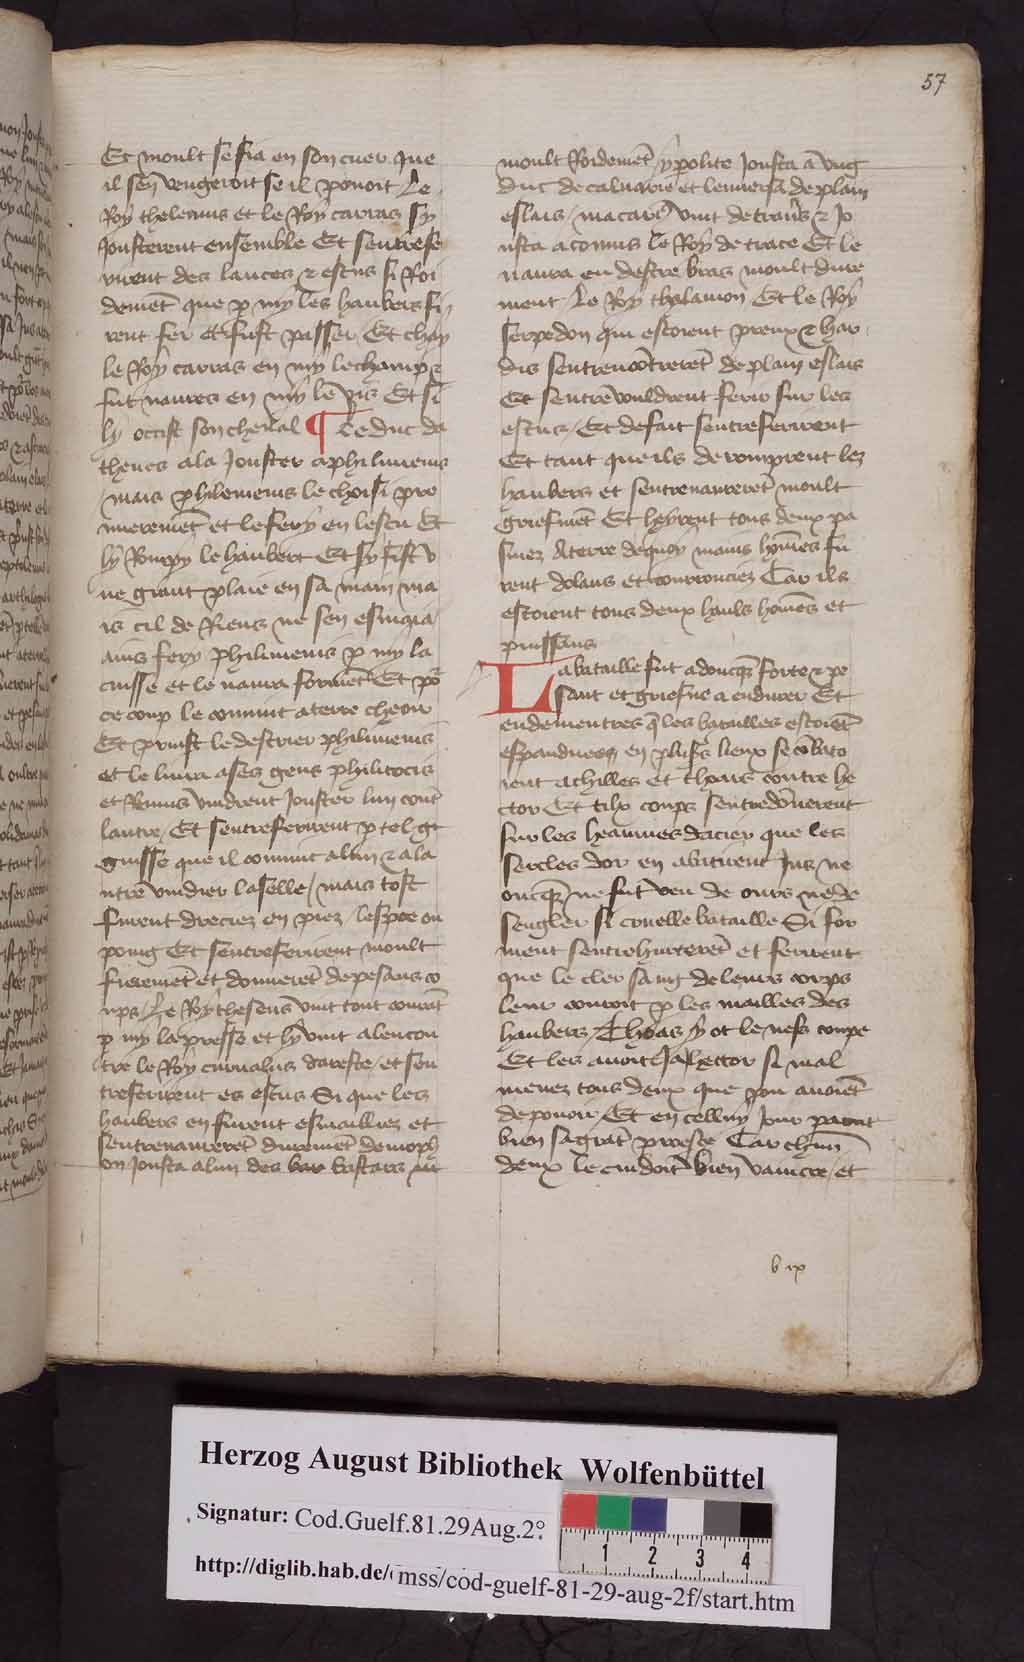 57
Et moult se fia en son cuer que
il sen vengeroit se il pouoit Le
Roy thelemus et le Roy carras sy
Jousterent ensemble Et sentrefe
rirent des lances ⁊ escus si Roi
demēt que ꝑ my les haubers fi
rent fer et fust passer Et chay
le Roy carras en my le champ ⁊
fut naures en my le vis Et si
ly occist son cheual ¶ Le duc da
thenes ala Jouster a philimenis
mais philemenis le choisi pre
mieremēt et le fery en lescu Et
ly Rompy le haubert Et sy fist v
ne grant plaie en sa main ma
is cil de Riens ne sen esmaia
ains fery philimenis ꝑ my la
cuisse et le naura formēt Et por
ce coup le conuint a terre cheoir
Et prinst le destrier philimenis
et le liura a ses gens philitocis
et Remus vindrent Jouster lun cont
lautre Et sentreferirent ꝑ tel gr
guisse que il conuint a lun ⁊ a la
utre vuidier la selle / mais tost
furent dreciez en piez lespee ou
poing Et sentreferirent moult
fieremēt et donnerēt de pesans co
ups Le Roy theseus vint tout courāt
ꝑ my la presse et ly vint a lencon
tre le Roy curnalus dareste et sen
treferirent es escus Si que les
haubers en furent esmailliez et
sentrenaurerēt duremēt demoph
on Jousta a lun des bastars
moult Roidemēt ypolite Jousta a vng
duc de caluarie et lenuersa de plain
eslais / macare vint de trauers ⁊ Jo
usta a comus le Roy de trace Et le
naura en destre bras moult dure
ment Le Roy thelamon Et le Roy
serpedon qui estoient preux ⁊ har
dis sentrencōtrerēt de plain eslais
Et sentre vouldrent ferir sur les
escus / Et de fait sentreferirent
Et tant que ils deromprent les
haubers et sentrenaurerēt moult
griefmēt Et cheyrent tous deux pa
smez a terre de quoy mains hōmes fu
rent dolans et courrouciez Car ils
estoient tous deux hauls homēs et
puissans
La bataille fut adoncqz forte ⁊ pe
sant et griefue a endurer Et
endementres q̄ les batailles estoiēt
espandues en plusrs lieux se cōbato
ient achilles et thoas contre he
ctor Et tilx coups sentredōnerent
sur les heaumes dacier que les
sercles dor en abatirent Jus ne
oncqz ne fut veu de ours ne de
sengler si cruelle bataille Si for
ment sentrehurterēt et ferirent
que le cler sang de leurs corps
leur couroit ꝑ les mailles des
haubers Thoas y ot le nefs coupe
Et les auoit Ja hector si mal
menez tous deux que pou auoiēt
de pouoir Et en celluy Jour parut
bien sa grāt proesce Car chūn
deux le cuidoit bien vaincre et
b ix
Herzog August Bibliothek Wolfenbüttel
Signatur: Cod.Guelf.81.29Aug.2°.
1 2 3 4
http://diglib.hab.de/mss/cod-guelf-81-29-aug-2f/start.htm